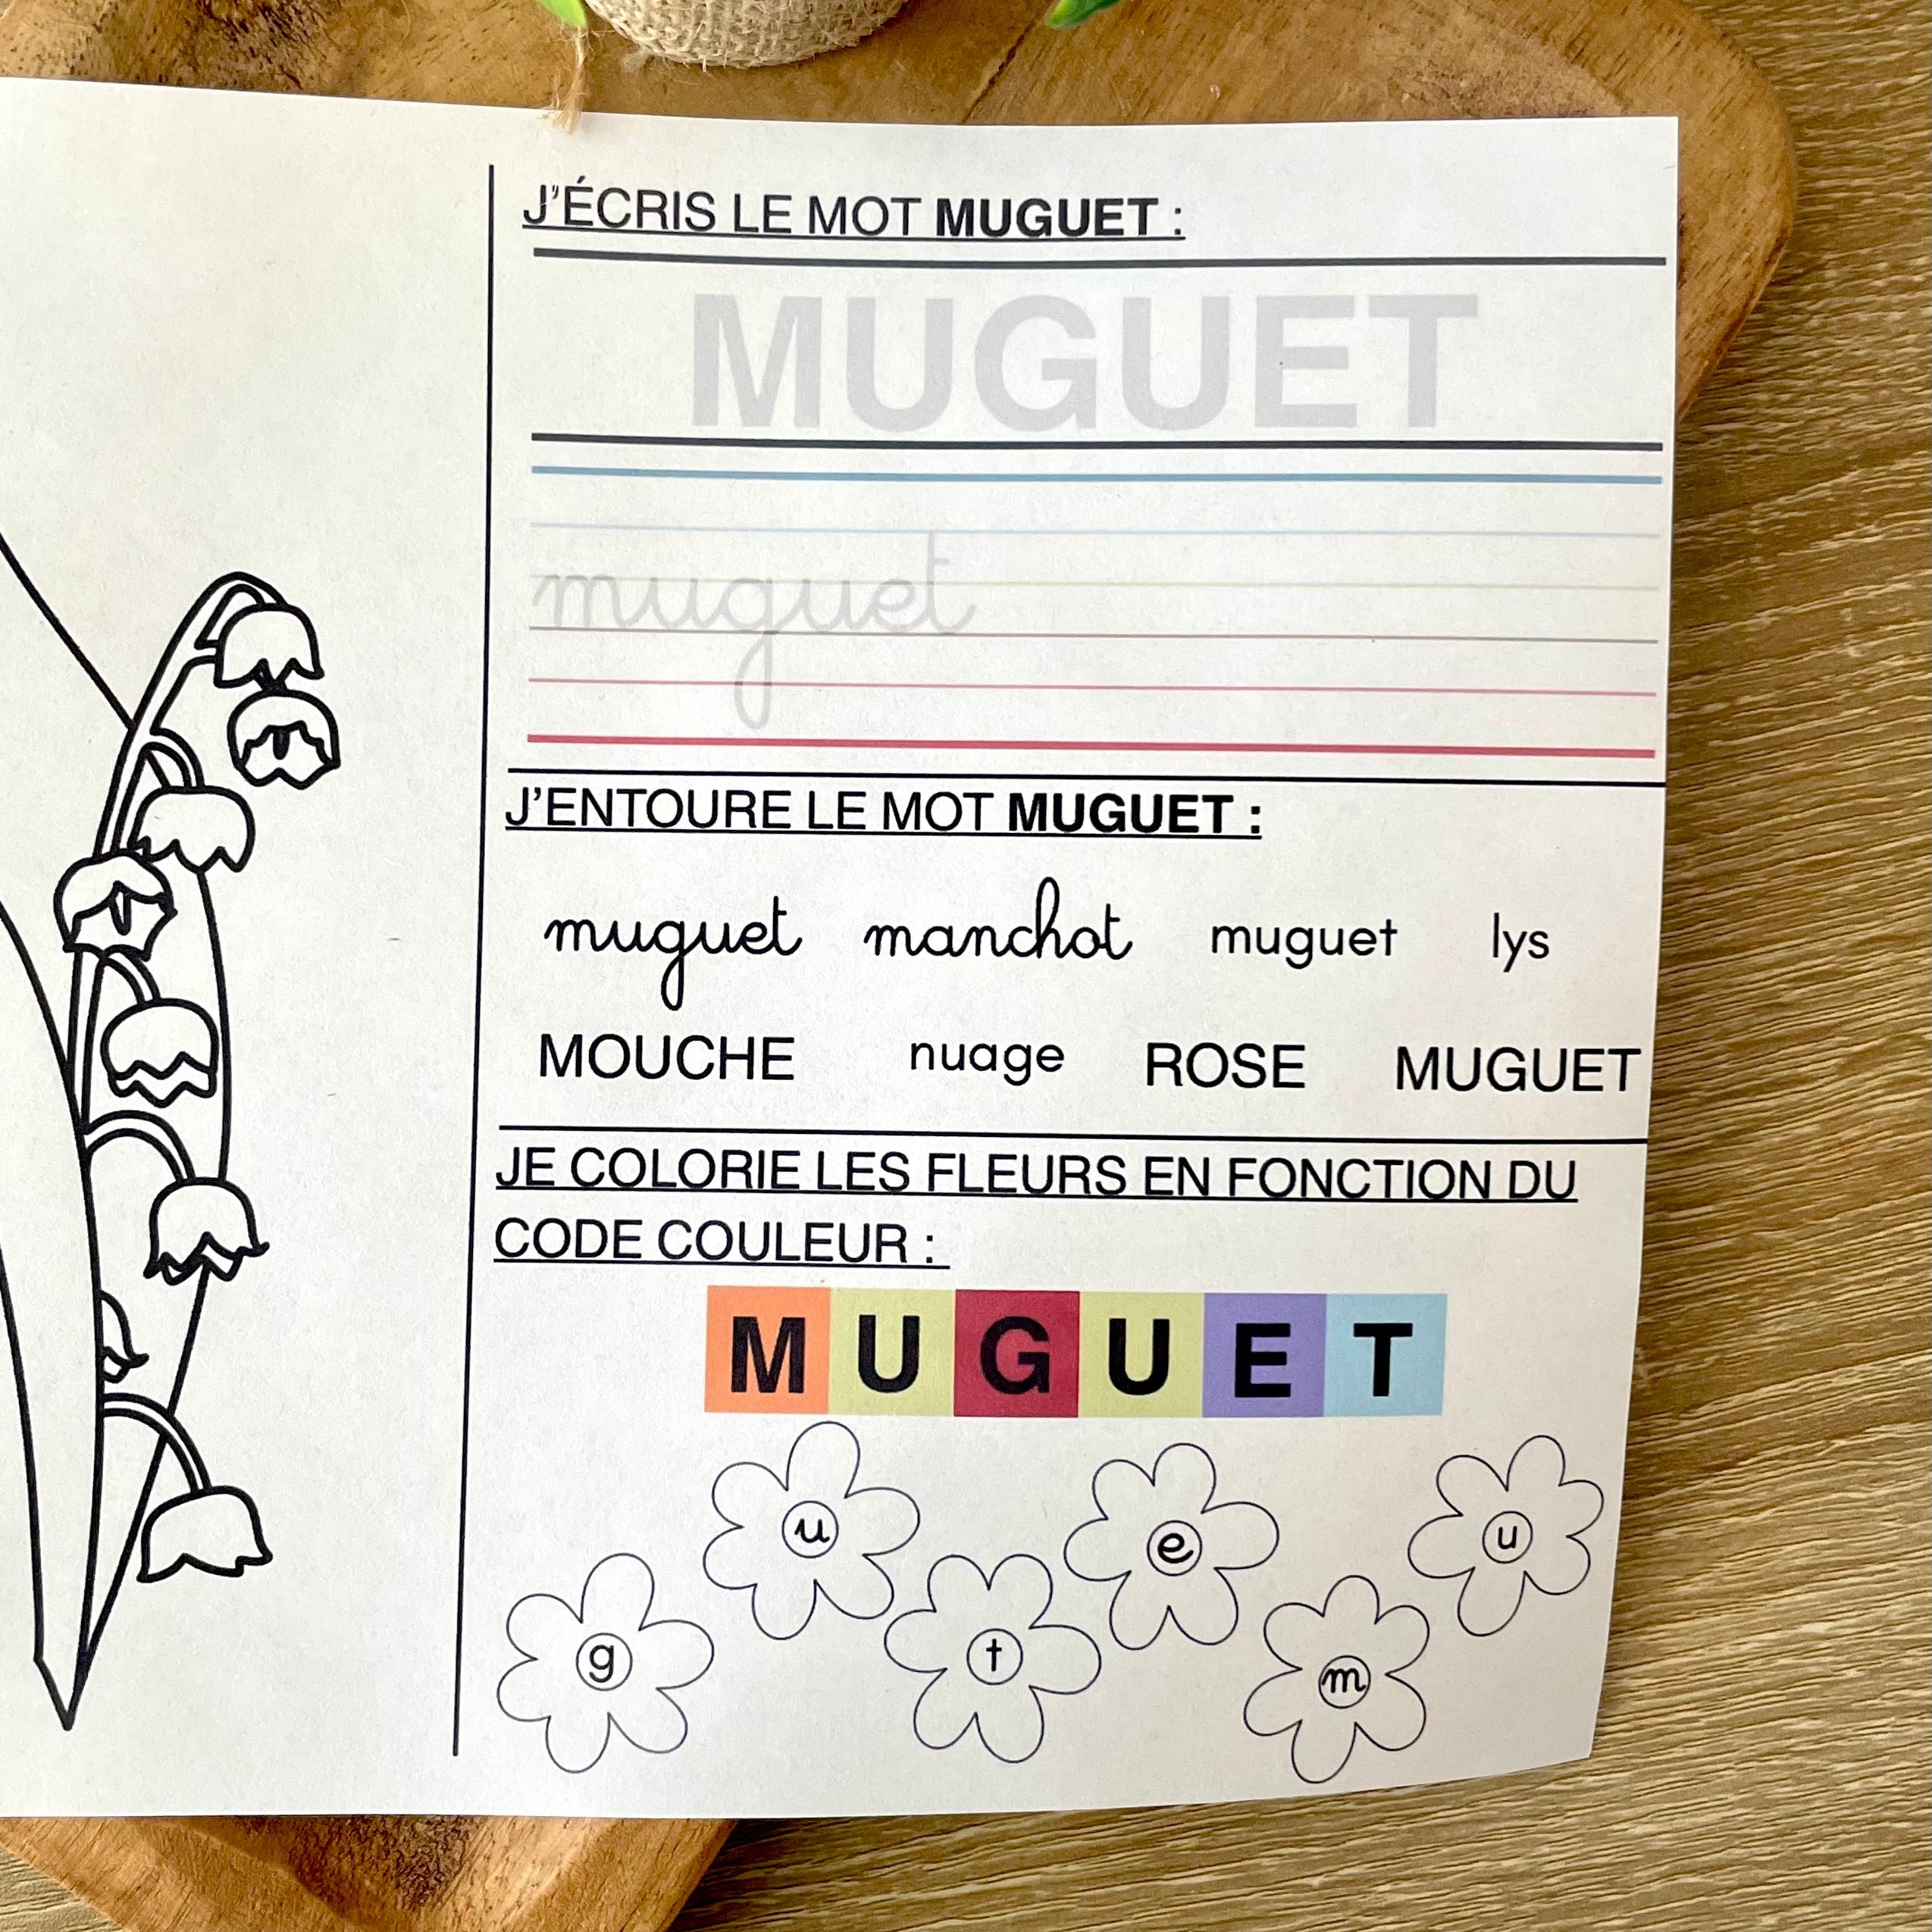 J'ÉCRIS LE MOT MUGUET :
MUGUET
muguet
J'ENTOURE LE MOT MUGUET :
muguet manchot muguet lys
MOUCHE nuage ROSE MUGUET
JE COLORIE LES FLEURS EN FONCTION DU
CODE COULEUR :
M U G U E T
u e u
g t m